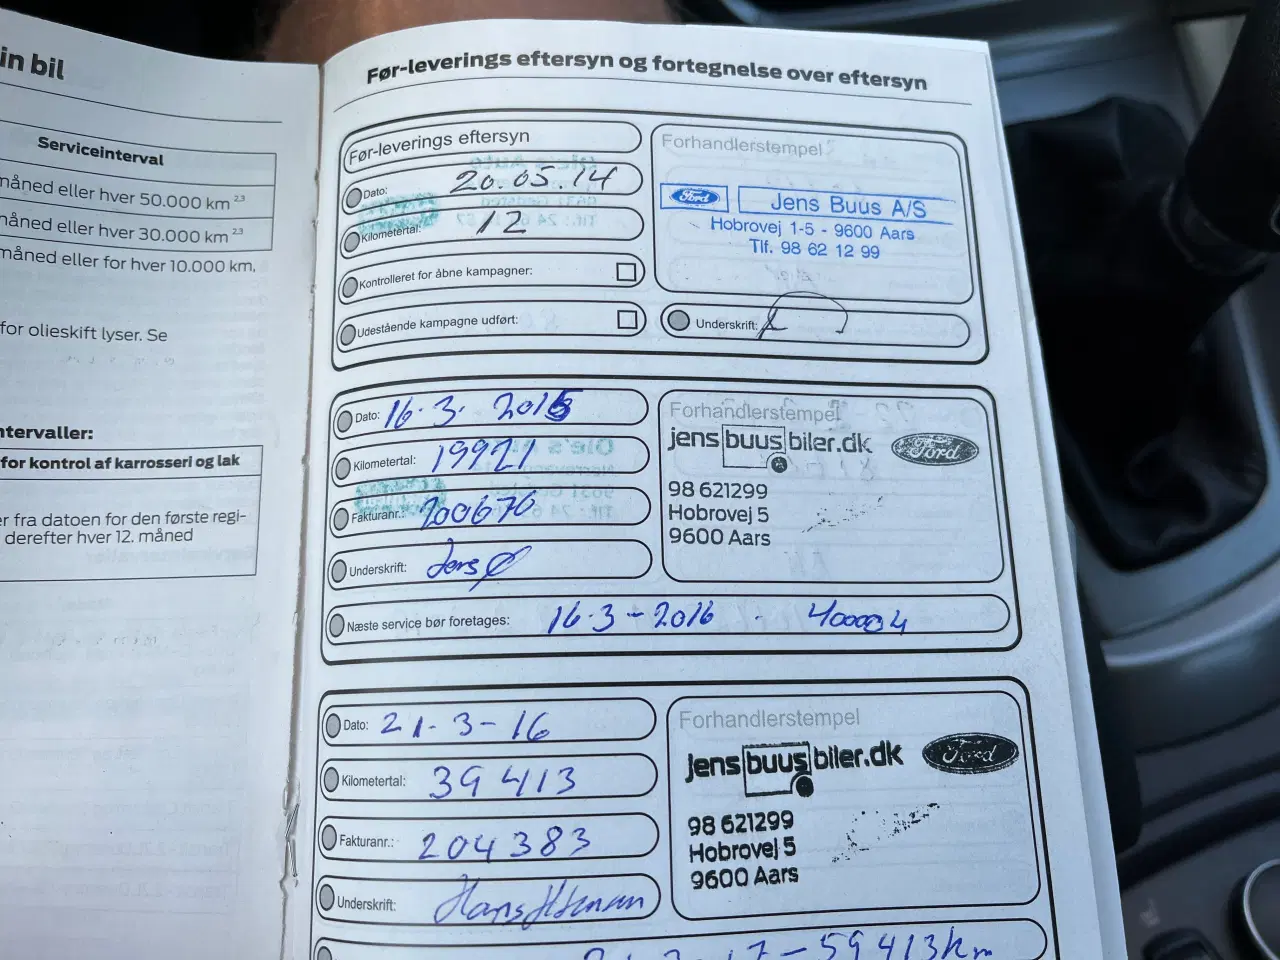 in bil
Serviceinterval
måned eller hver 50.000 km 2,3
måned eller hver 30.000 km 2,3
måned eller for hver 10.000 km,
for olieskift lyser. Se
ntervaller:
for kontrol af karrosseri og lak
er fra datoen for den første regi-
derefter hver 12. måned
Før-leverings eftersyn og fortegnelse over eftersyn
Før-leverings eftersyn
Dato: 20.05.14
Kilometertal: 12
Kontrolleret for åbne kampagner:
Udestående kampagne udført:
Forhandlerstempel
Ford
Jens Buus A/S
Hobrovej 1-5 - 9600 Aars
Tlf. 98 62 12 99
Underskrift:
Dato: 16.3. 2015
Kilometertal: 19921
Fakturanr.: 200670
Underskrift: Jens
Næste service bør foretages: 16.3-2016
Forhandlerstempel
jensbuusbiler.dk
Ford
98 621299
Hobrovej 5
9600 Aars
Dato: 21-3-16
Kilometertal: 39413
Fakturanr.: 204383
Underskrift: Hans
Forhandlerstempel
jensbuusbiler.dk
Ford
98 621299
Hobrovej 5
9600 Aars
59413km